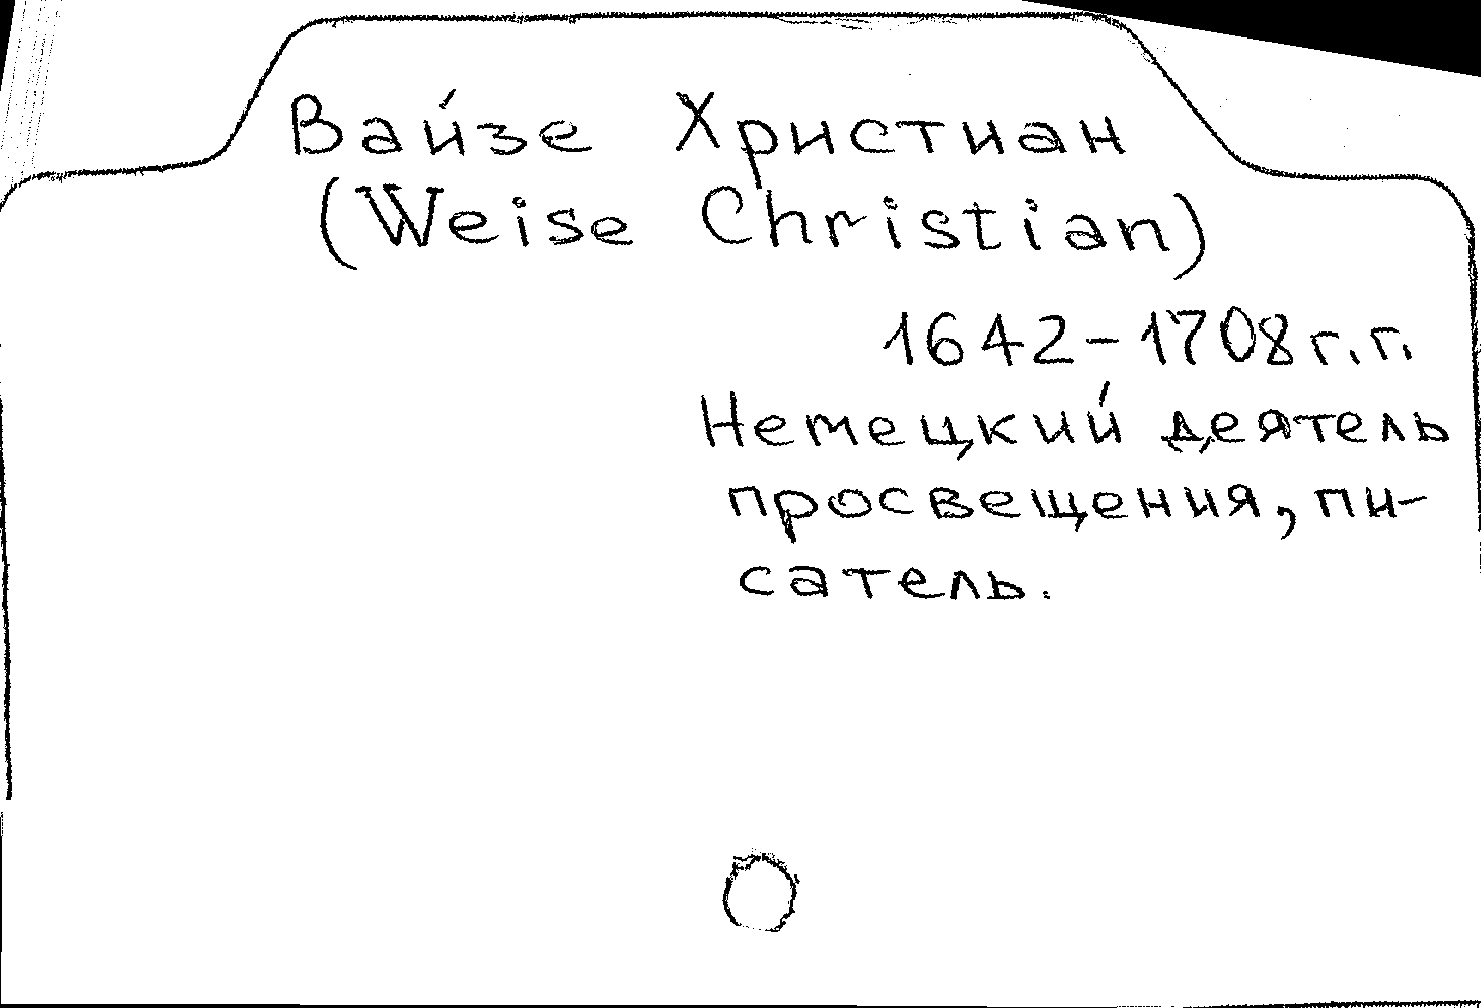 Вайзе Христиан
(Weise Christian)
1642-1708 г.г.
Немецкий деятель
просвещения, пи-
сатель.